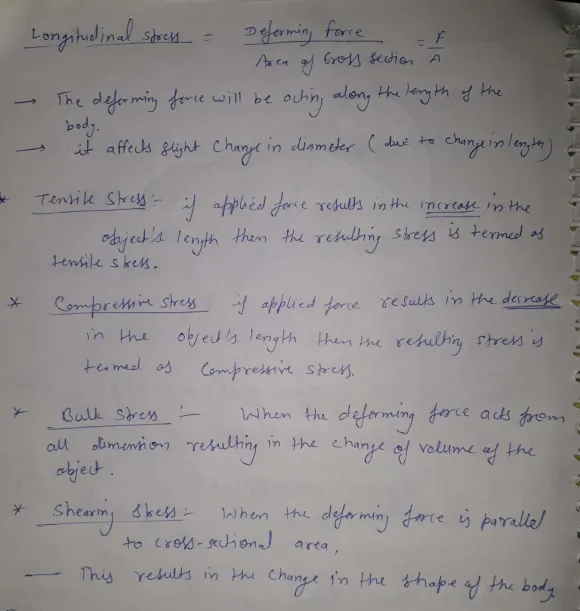 Longitudinal stress = Deforming force / Area of Cross section = F / A
→ The deforming force will be acting along the length of the
body.
→ it affects slight change in diameter ( due to change in length)
* Tensile Stress :- if applied force results in the increase in the
object's length then the resulting stress is termed as
tensile stress.
* Compressive stress if applied force results in the decrease
in the object's length then the resulting stress is
termed as Compressive stress.
* Bulk stress :- When the deforming force acts from
all dimension resulting in the change of volume of the
object.
* Shearing stress :- When the deforming force is parallel
to cross-sectional area,
— This results in the change in the shape of the body